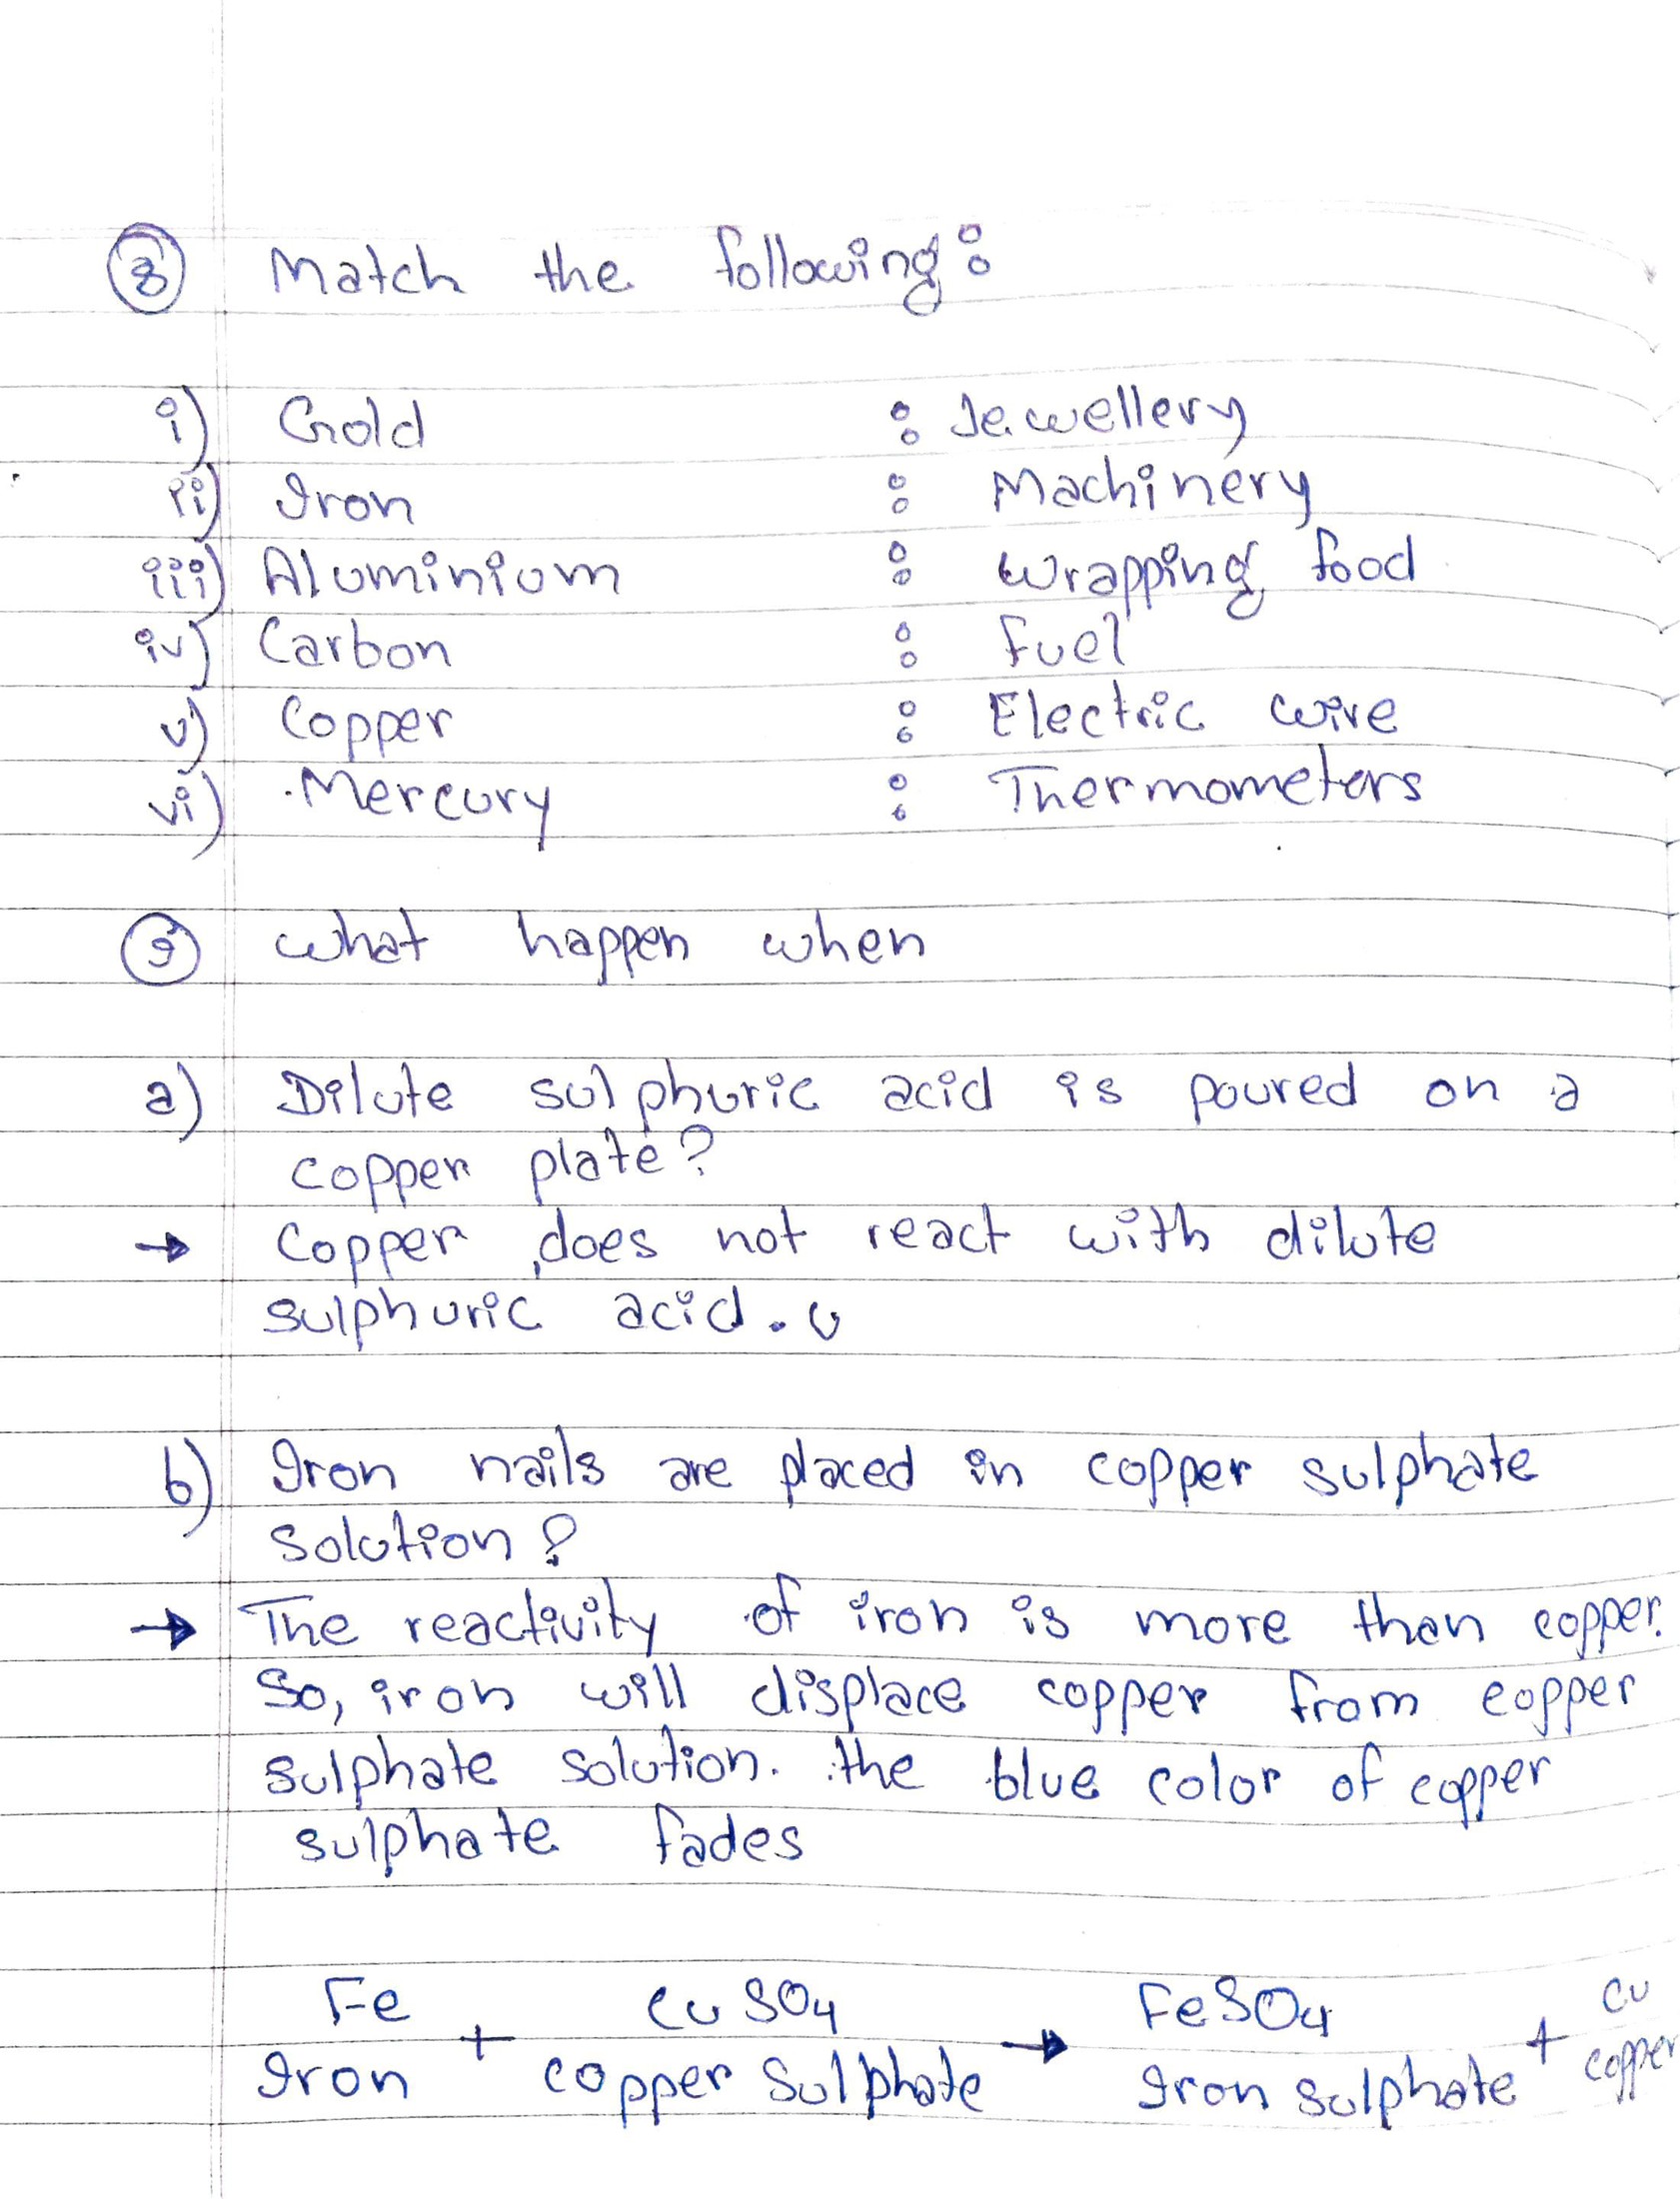 8 Match the following :
i) Gold : Jewellery
ii) Iron : Machinery
iii) Aluminium : wrapping food
iv) Carbon : fuel
v) Copper : Electric wire
vi) Mercury : Thermometers
9 what happen when
a) Dilute sulphuric acid is poured on a
copper plate?
→ Copper does not react with dilute
sulphuric acid.
b) Iron nails are placed in copper sulphate
solution?
→ The reactivity of iron is more than copper.
So, iron will displace copper from copper
sulphate solution. the blue color of copper
sulphate fades
Fe + CuSO4 → FeSO4 + Cu
Iron copper Sulphate Iron sulphate copper